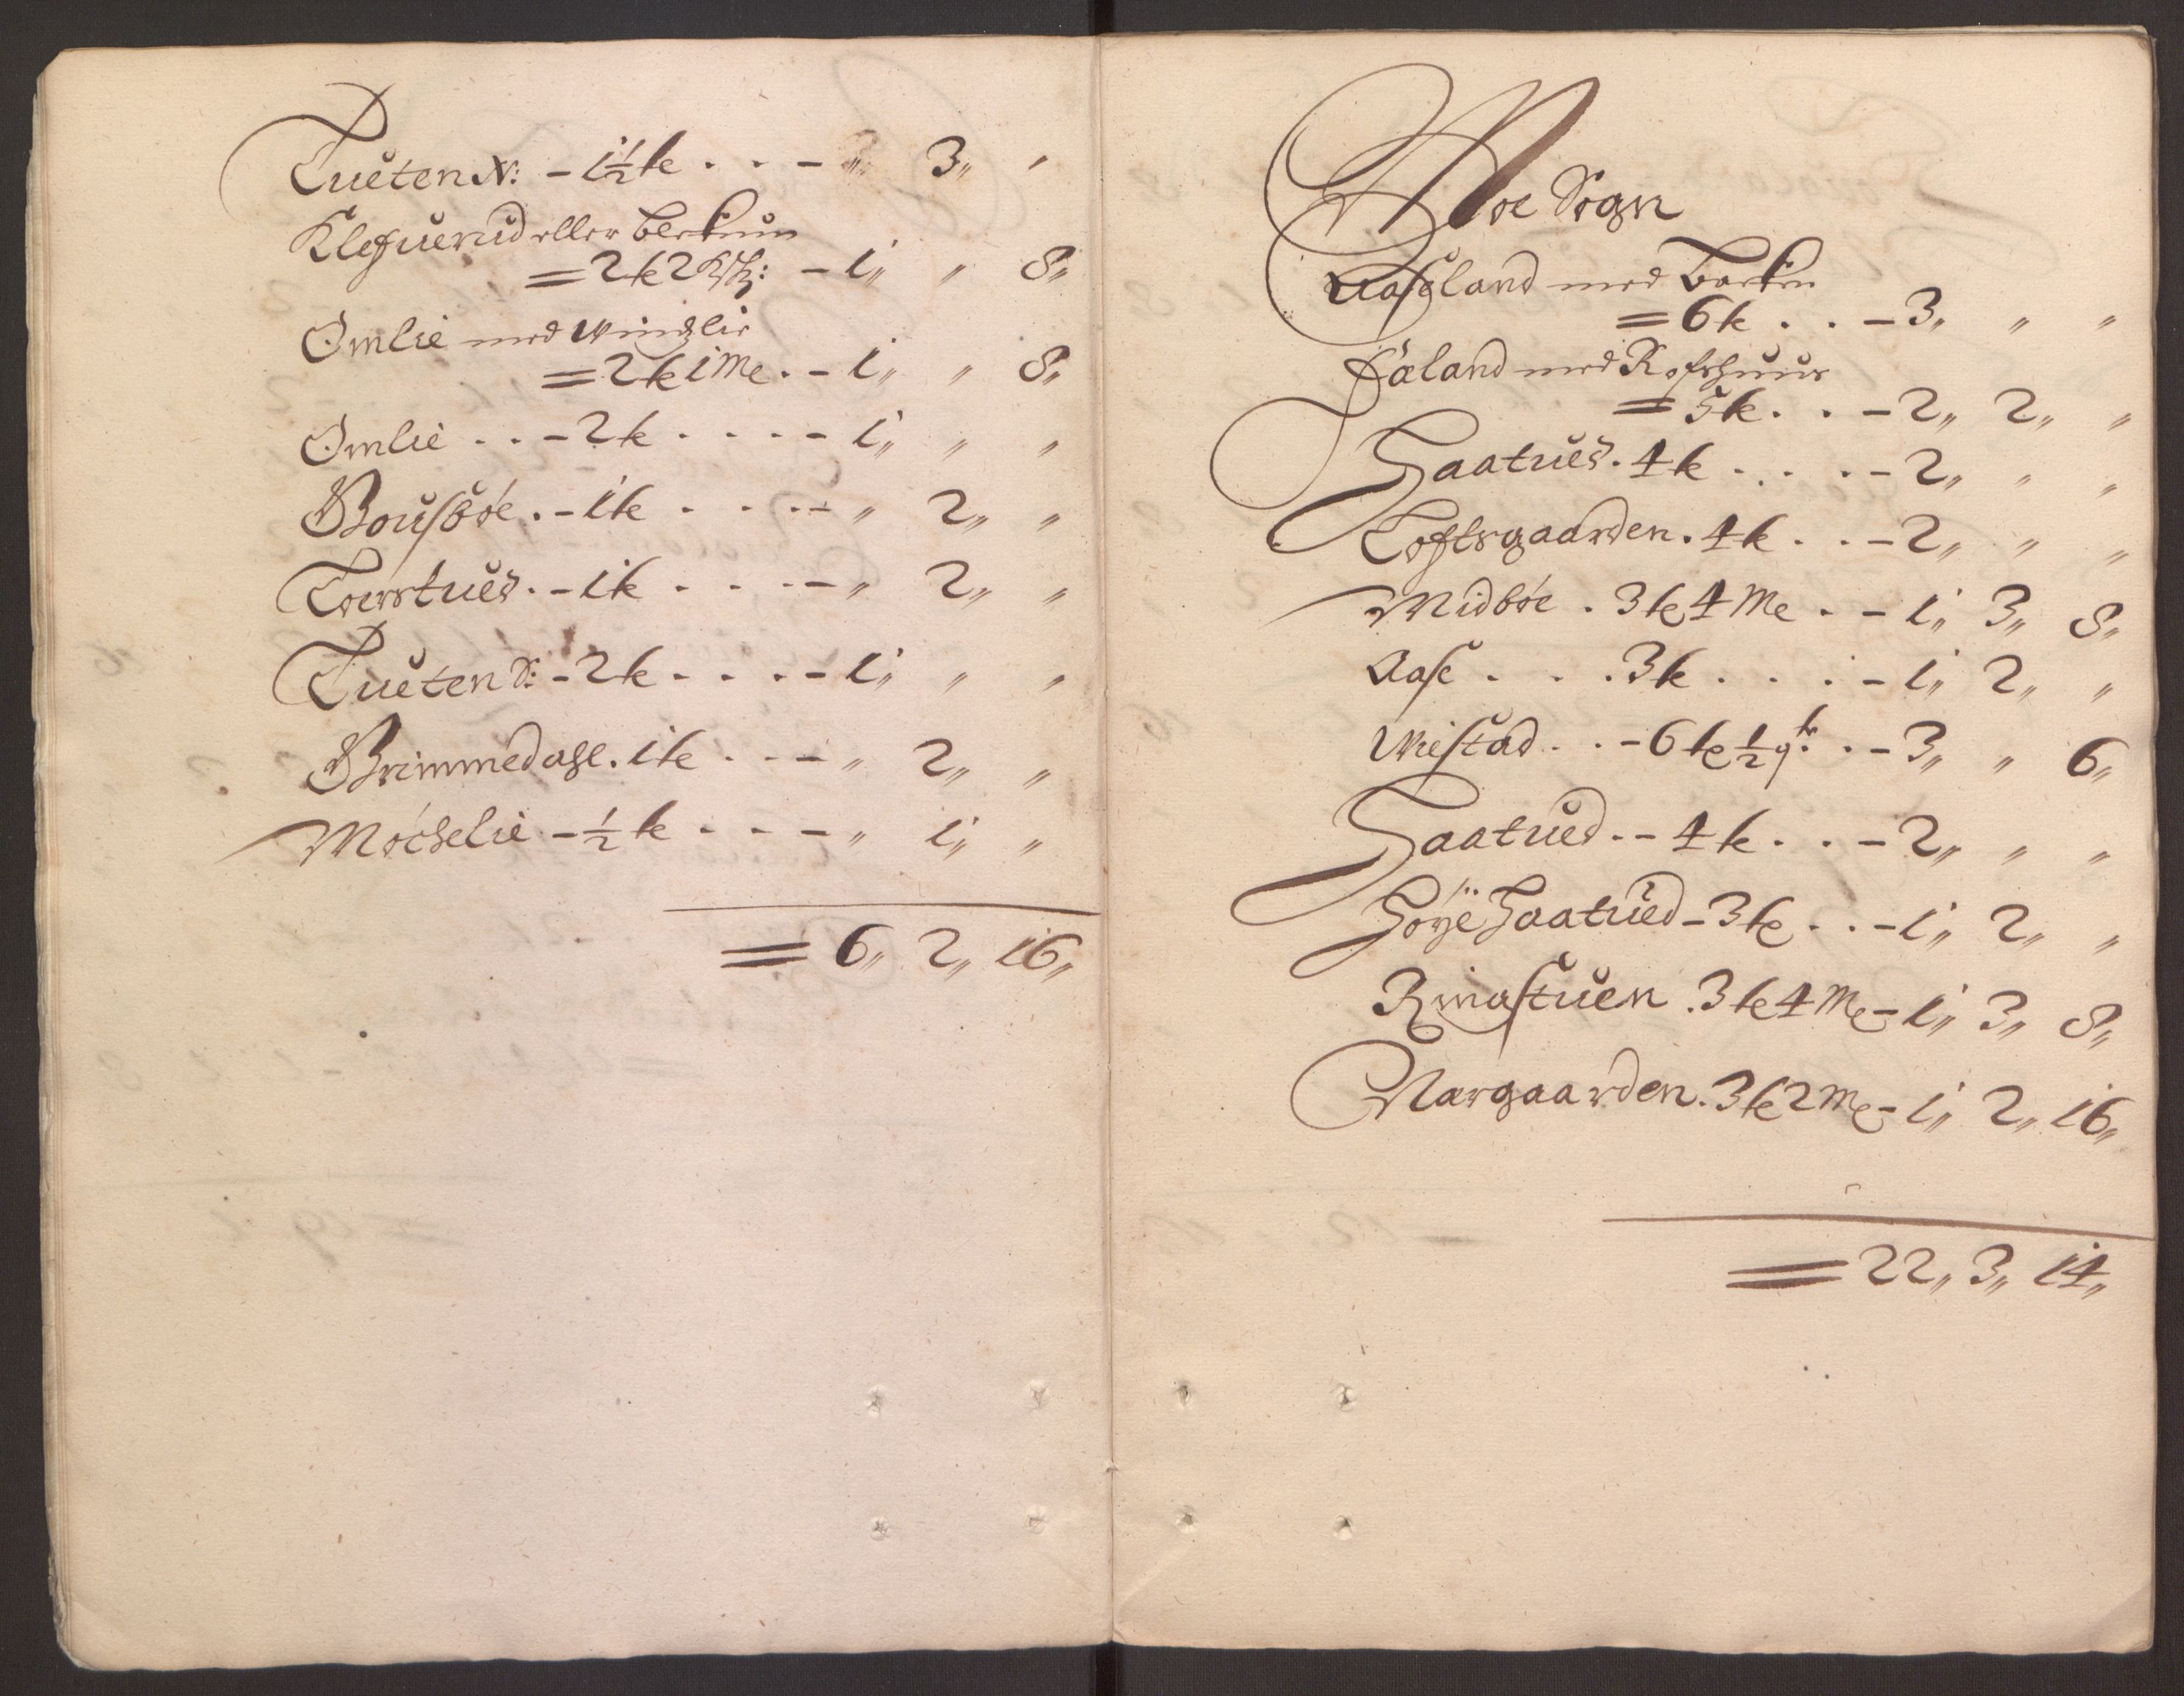 Tueten N: - 1½ k . . - „ 3„ „
Klefuerud eller Berkuun
= 2 k 2 Ksk: - 1„ „ 8„
Omlie med Windlie
= 2 k 1 Me . - 1„ „ 8„
Omlie . . - 2 k . . . . - 1„ „ „
Bousböe . - 1 k . . . . - „ 2„ „
Toerstued . - 1 k . . . . - „ 2„ „
Tueten S: - 2 k . . . . - 1„ „ „
Brimmedahl . 1 k . . . - „ 2„ „
Möchelie - ½ k . . . - „ 1„ „
= 6„ 2„ 16„
Moe Sogn
Aasland med Backen
= 6 k . . . - 3„ „ „
Faland med Rofshuus
= 5 k . . - 2„ 2„ „
Haatued . 4 k . . . . - 2„ „ „
Loftsgaarden . 4 k . . - 2„ „ „
Midböe . 3 k 4 Me . - 1„ 3„ 8„
Aase . . . 3 k . . . . - 1„ 2„ „
Wiestad . . - 6 k ½ qr . . - 3„ „ 6„
Haatued . - 4 k . . . - 2„ „ „
Höye Haatued - 3 k . . . - 1„ 2„ „
Rinastuen . 3 k 4 Me - 1„ 3„ 8„
Nargaarden . 3 k 2 Me - 1„ 2„ 16„
= 22„ 3„ 14„